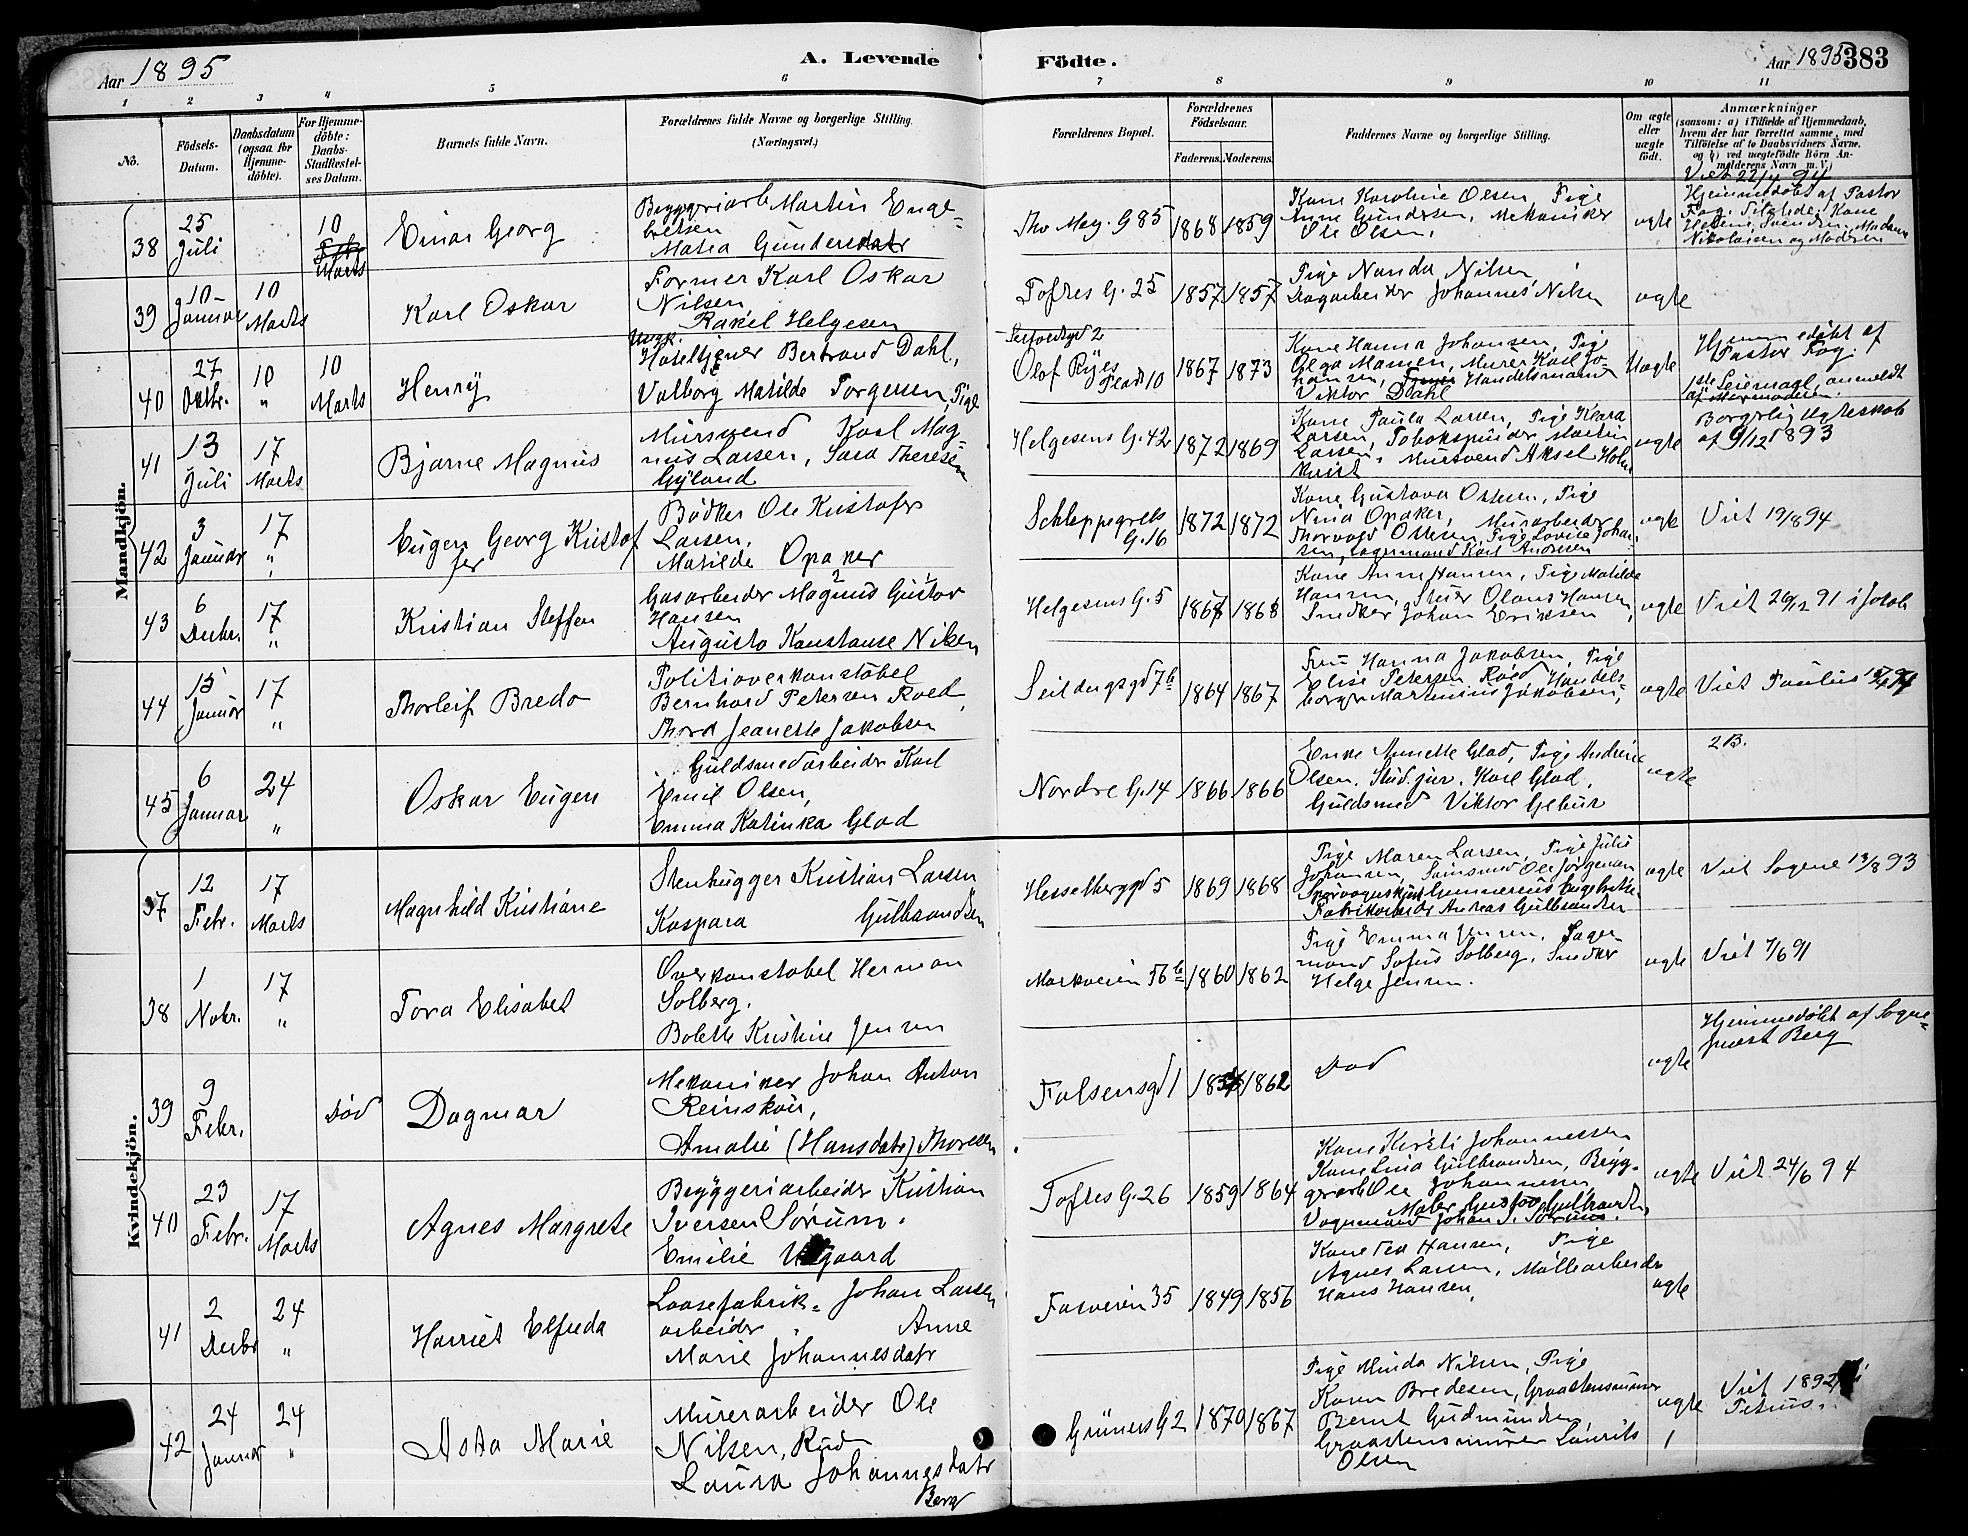 Aar 1895
A. Levende Födte.
Aar 1895 383
1 2 3 4 5 6 7 8 9 10 11
No.
Födsels-Datum.
Daabsdatum (ogsaa for Hjemme-döbte).
For Hjemme-döbte: Daabs-Stadfæstel-ses Datum.
Barnets fulde Navn.
Forældrenes fulde Navne og borgerlige Stilling.
(Næringsvei.)
Forældrenes Bopæl.
Forældrenes Födselsaar.
Faderens. Moderens.
Faddernes Navne og borgerlige Stilling.
Om ægte eller uægte födt.
Anmærkninger
(saasom: a) i Tilfælde af Hjemmedaab,
hvem der har forrettet samme, med
Tilföielse af to Daabsvidners Navne,
og b) ved uægtefödte Börn An-
melderens Navn m. V.)
Mandkjön.
38
25 Juli
10 Marts
Einar Georg
Martin Enge-
bretsen
Gundersdatr
Thv Mey. G 85
1868 1859
Kone Karoline Olsen Pige
Anne Gundersen, Mekaniker
Ole Olsen,
ægte
Viet 22/4 94
Hjemmedöbt af Pastor
Kone
Nikolaisen og Moderen
39
10 Januar
10 Marts
Karl Oskar
Former Karl Oskar
Nilsen
Rakel Helgesen
Toftes G. 25
1857 1857
Pige Nanda Nilsen
Dagarbeider Johannes Nilsen
ægte
40
27 Oktbr.
10 "
10 Marts
Henry
Hoteltjener Bertrand Dahl,
Valborg Matilde Torgersen, Pige
Olof Ryes Plads 10
1867 1873
Kone Hanna Johansen, Pige
Olga Hansen, Murer Karl Jo-
hansen, Handelsmand
Viktor Dahl
Uægte
Hjemmedöbt af
Pastor Fog
1ste Leiermaal, anmeldt
af Mormoderen.
41
13 Juli
17 Marts
Bjarne Magnus
Mursvend Karl Mag-
nus Larsen, Sara Theresen
Gyland
Helgesens G. 42
1872 1869
Kone Paula Larsen, Pige Klara
Larsen, Tobokspinder Martin
Larsen, Mursvend Aksel Holm-
kvist
ægte
Borgerlig Ægteskab
af 9/12 1893
42
3 Januar
17 "
Eugen Georg Kristof
fer
Bödker Ole Kristofer
Larsen,
Matilde Opaker
Schleppegrells G. 16
1872 1872
Kone Gustava Ottesen, Pige
Nina Opaker, Murarbeider
Thorvald Ottesen, Pige Lovise Johan-
sen, Lagermand Karl Andresen
ægte
Viet 19/8 94
43
6 Decbr.
17 "
Kristian Steffen
Gasarbeider Magnus Gustav
Hansen
Augusta Konstanse Nilsen
Helgesens G. 5
1868 1868
Kone Anne Hansen, Pige Matilde
Hansen, Olaus Hansen
Snedker Johan Eriksen
ægte
Viet 26/12 91 i Jakob
44
15 Januar
17 "
Thorleif Bredo
Politioverkonstabel
Bernhard Petersen Roed,
Thora Jeanette Jakobsen
Seildugsgd 7b
1864 1867
Fru Hanna Jakobsen, Pige
Elise Petersen Roed, Handels-
borger Martinius Jakobsen,
ægte
Viet Paulus
45
6 Januar
24 "
Oskar Eugen
Guldsmedarbeider Karl
Emil Olsen,
Emma Katinka Glad
Nordre G. 14
1866 1866
Enke Annette Glad, Pige Andrine
Olsen, Stud. jur. Karl Glad,
Guldsmed Viktor Gebur
ægte
2 B.
Kvindekjön.
37
12 Febr.
17 Marts
Magnhild Kristiane
Stenhugger Kristian Larsen
Kaspara Gulbrandsen
Hesselberggd 5
1869 1868
Pige Maren Larsen, Pige Julie
Johansen, Ole Jörgensen
Fabrikarbeider Andreas Gulbrandsen
ægte
Viet Sagene 13/8 93
38
1 Nobr.
17 "
Tora Elisabet
Overkonstabel Herman
Solberg.
Bolette Kristine Jensen
Markveien 56b
1860 1862
Pige Emma Jensen, Lager-
mand Sofus Solberg, Snedker
Helge Jensen.
ægte
Viet 7/6 91
39
9 Febr.
Död
Dagmar
Mekaniker Johan Anton
Reinskau,
Amalie (Hansdatr) Thoresen
Falsensgd 1
1862
Död
ægte
Hjemmedöbt af Sogne-
præst Berg
40
23 Febr.
17 Marts
Agnes Margrete
Bryggeriarbeider Kristian
Iversen Sörum.
Emilie
Toftes G. 26
1859 1864
Kone Kirsti Johannessen
Kone Lina Gulbrandsen, Bryg-
geriarb Ole Johannesen
Maler Gustav Gulbrandsen
Vognmand Johan S. Sörum.
ægte
Viet 24/6 94
41
2 Decbr
24 "
Harriet Elfrida
Laasefabrik- Johan Larsen
arbeider Anne
Marie Johannesdatr
Fosveien 35
1849 1856
Kone Tea Hansen, Pige
Agnes Larsen, Möllearbeider
Hans Hansen,
ægte
42
24 Januar
24 "
Asta Marie
Murerarbeider Ole
Nilsen, Rud
Laura Johannesdatr
Berg
Grüners G 2
1870 1867
Pige Minda Nilsen, Pige
Karen Bredesen, Graastensmurer
Bernt Gudmundsen,
Graastensmurer Laurits
Olsen
ægte
Viet 1892
Petrus.